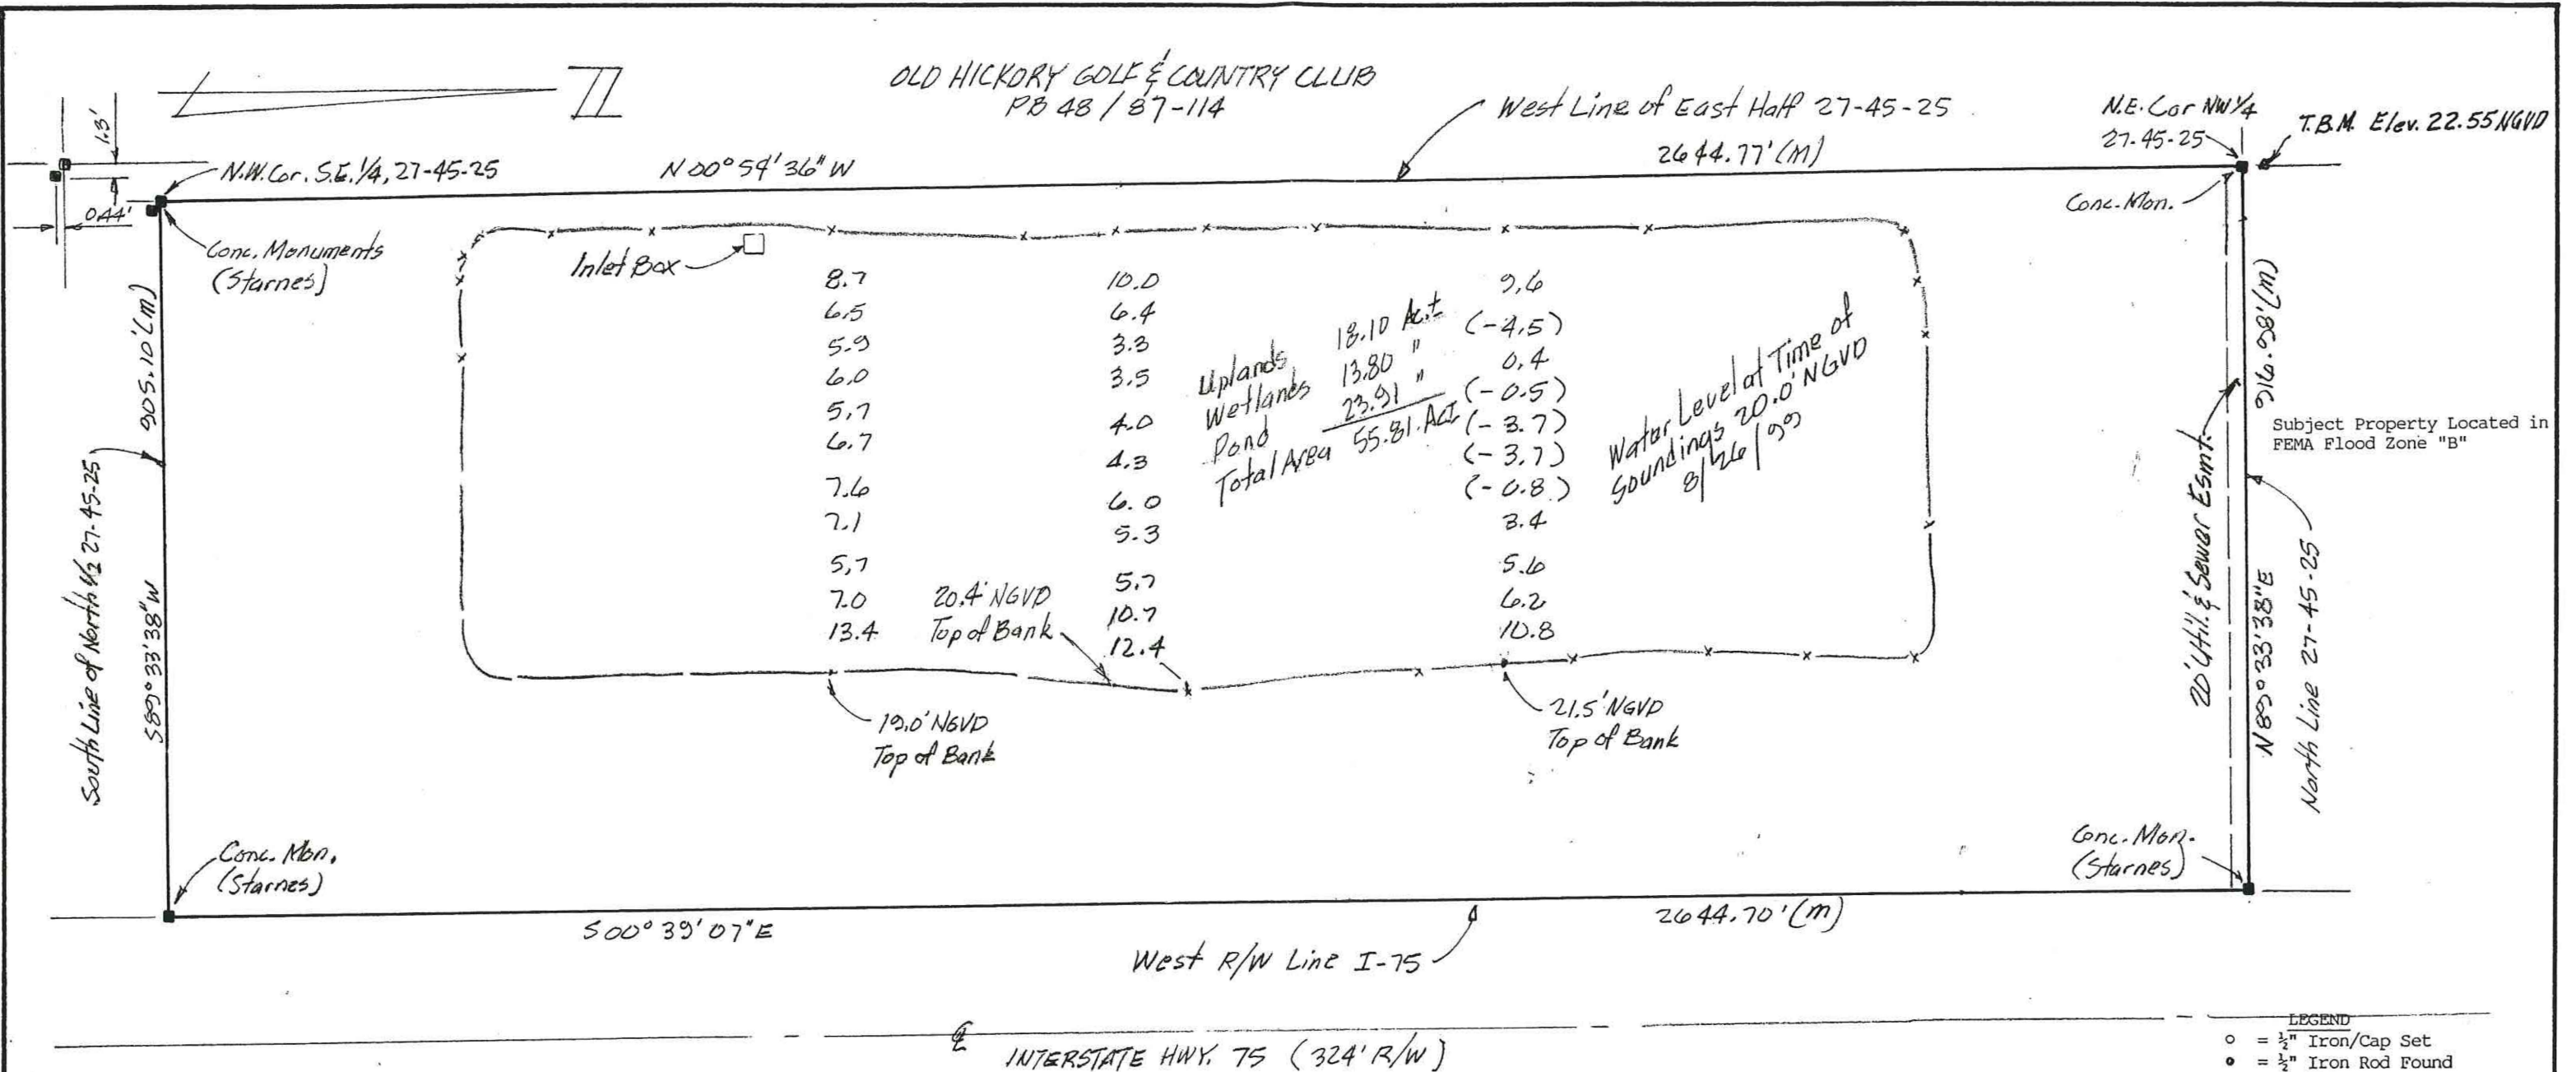 OLD HICKORY GOLF & COUNTRY CLUB
PB 48 / 87-114
West Line of East Half 27-45-25
N.E. Cor NW 1/4
27-45-25
T.B.M. Elev. 22.55 NGVD
1.3'
0.44'
N.W. Cor. S.E. 1/4, 27-45-25
N 00° 54' 36" W
2644.77' (M)
Conc. Mon.
Conc. Monuments
(Starnes)
Inlet Box
8.7
6.5
5.9
6.0
5.7
6.7
7.6
7.1
5.7
7.0
13.4
10.0
6.4
3.3
3.5
4.0
4.3
6.0
5.3
5.7
10.7
12.4
Uplands 18.10 Ac.±
Wetlands 13.80 "
Pond 23.91 "
Total Area 55.81 Ac±
9.6
(-4.5)
0.4
(-0.5)
(-3.7)
(-3.7)
(-0.8)
3.4
5.6
6.2
10.8
Water Level at Time of
Soundings 20.0' NGVD
8/26/99
20.4' NGVD
Top of Bank
19.0' NGVD
Top of Bank
21.5' NGVD
Top of Bank
South Line of North 1/2 27-45-25
905.10' (M)
S 89° 33' 38" W
20' Util. & Sewer Esmt.
916.98' (M)
N 89° 33' 38" E
North Line 27-45-25
Subject Property Located in
FEMA Flood Zone "B"
Conc. Mon.
(Starnes)
Conc. Mon.
(Starnes)
S 00° 39' 07" E
2644.70' (M)
West R/W Line I-75
℄
INTERSTATE HWY. 75 (324' R/W)
LEGEND
○ = ½" Iron/Cap Set
● = ½" Iron Rod Found